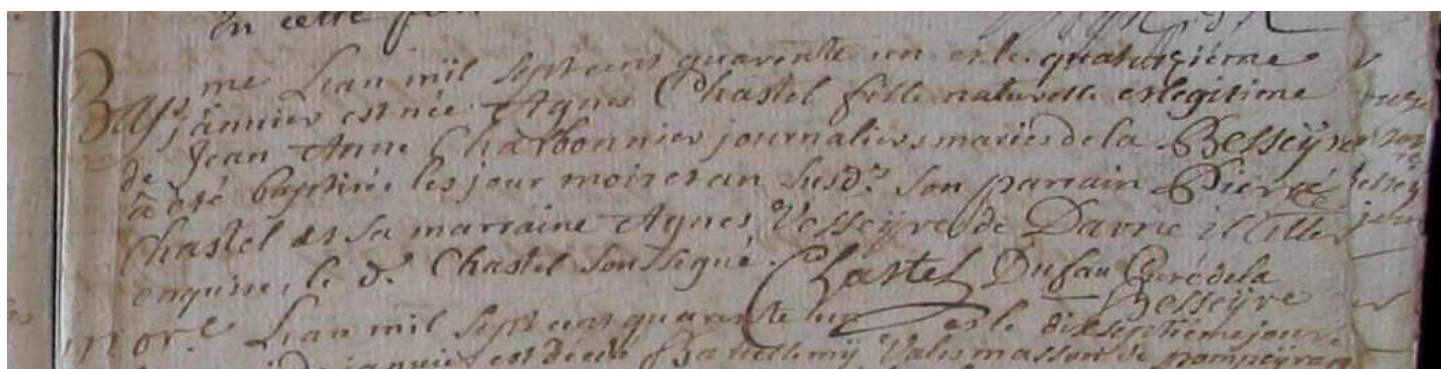 en cette
Bap.me L'an mil sept cent quarante un et le quatorzième
janvier est née Agnes Chastel fille naturelle et legitime
de Jean Anne Charbonnier journaliers mariés de la Besseÿre
à été baptisée les jour mois et an susd.s son parrain Pierre
Chastel et sa marraine Agnes Vesseÿre de Darne
enquise, le d. Chastel soussigné. Chastel Dufau Curé de la
Besseÿre
mor.e L'an mil sept cent quarante un et le dixseptieme jour
janvier est décédé Barthelemÿ Vales masson de pompeÿren